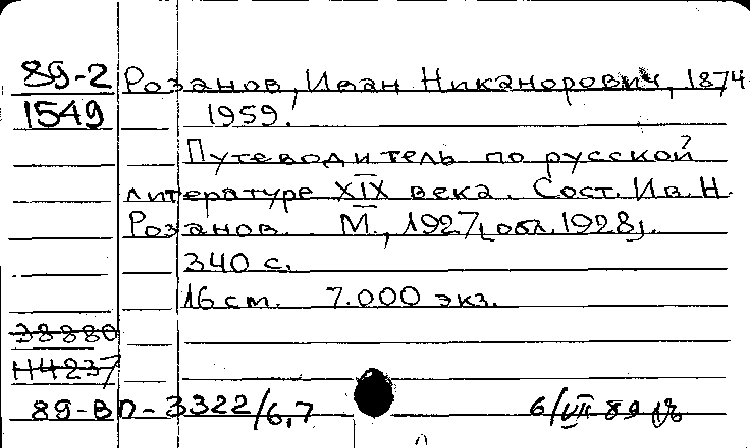 89-2 Розанов, Иван Никанорович, 1874
1549 1959.
Путеводитель по русской
литературе XIX века. Сост. Ив. Н.
Розанов. М., 1927 [обл. 1928].
340 с.
16 см. 7.000 экз.
38880
Н4237
89-ВО-3322/6,7 6/VII 89